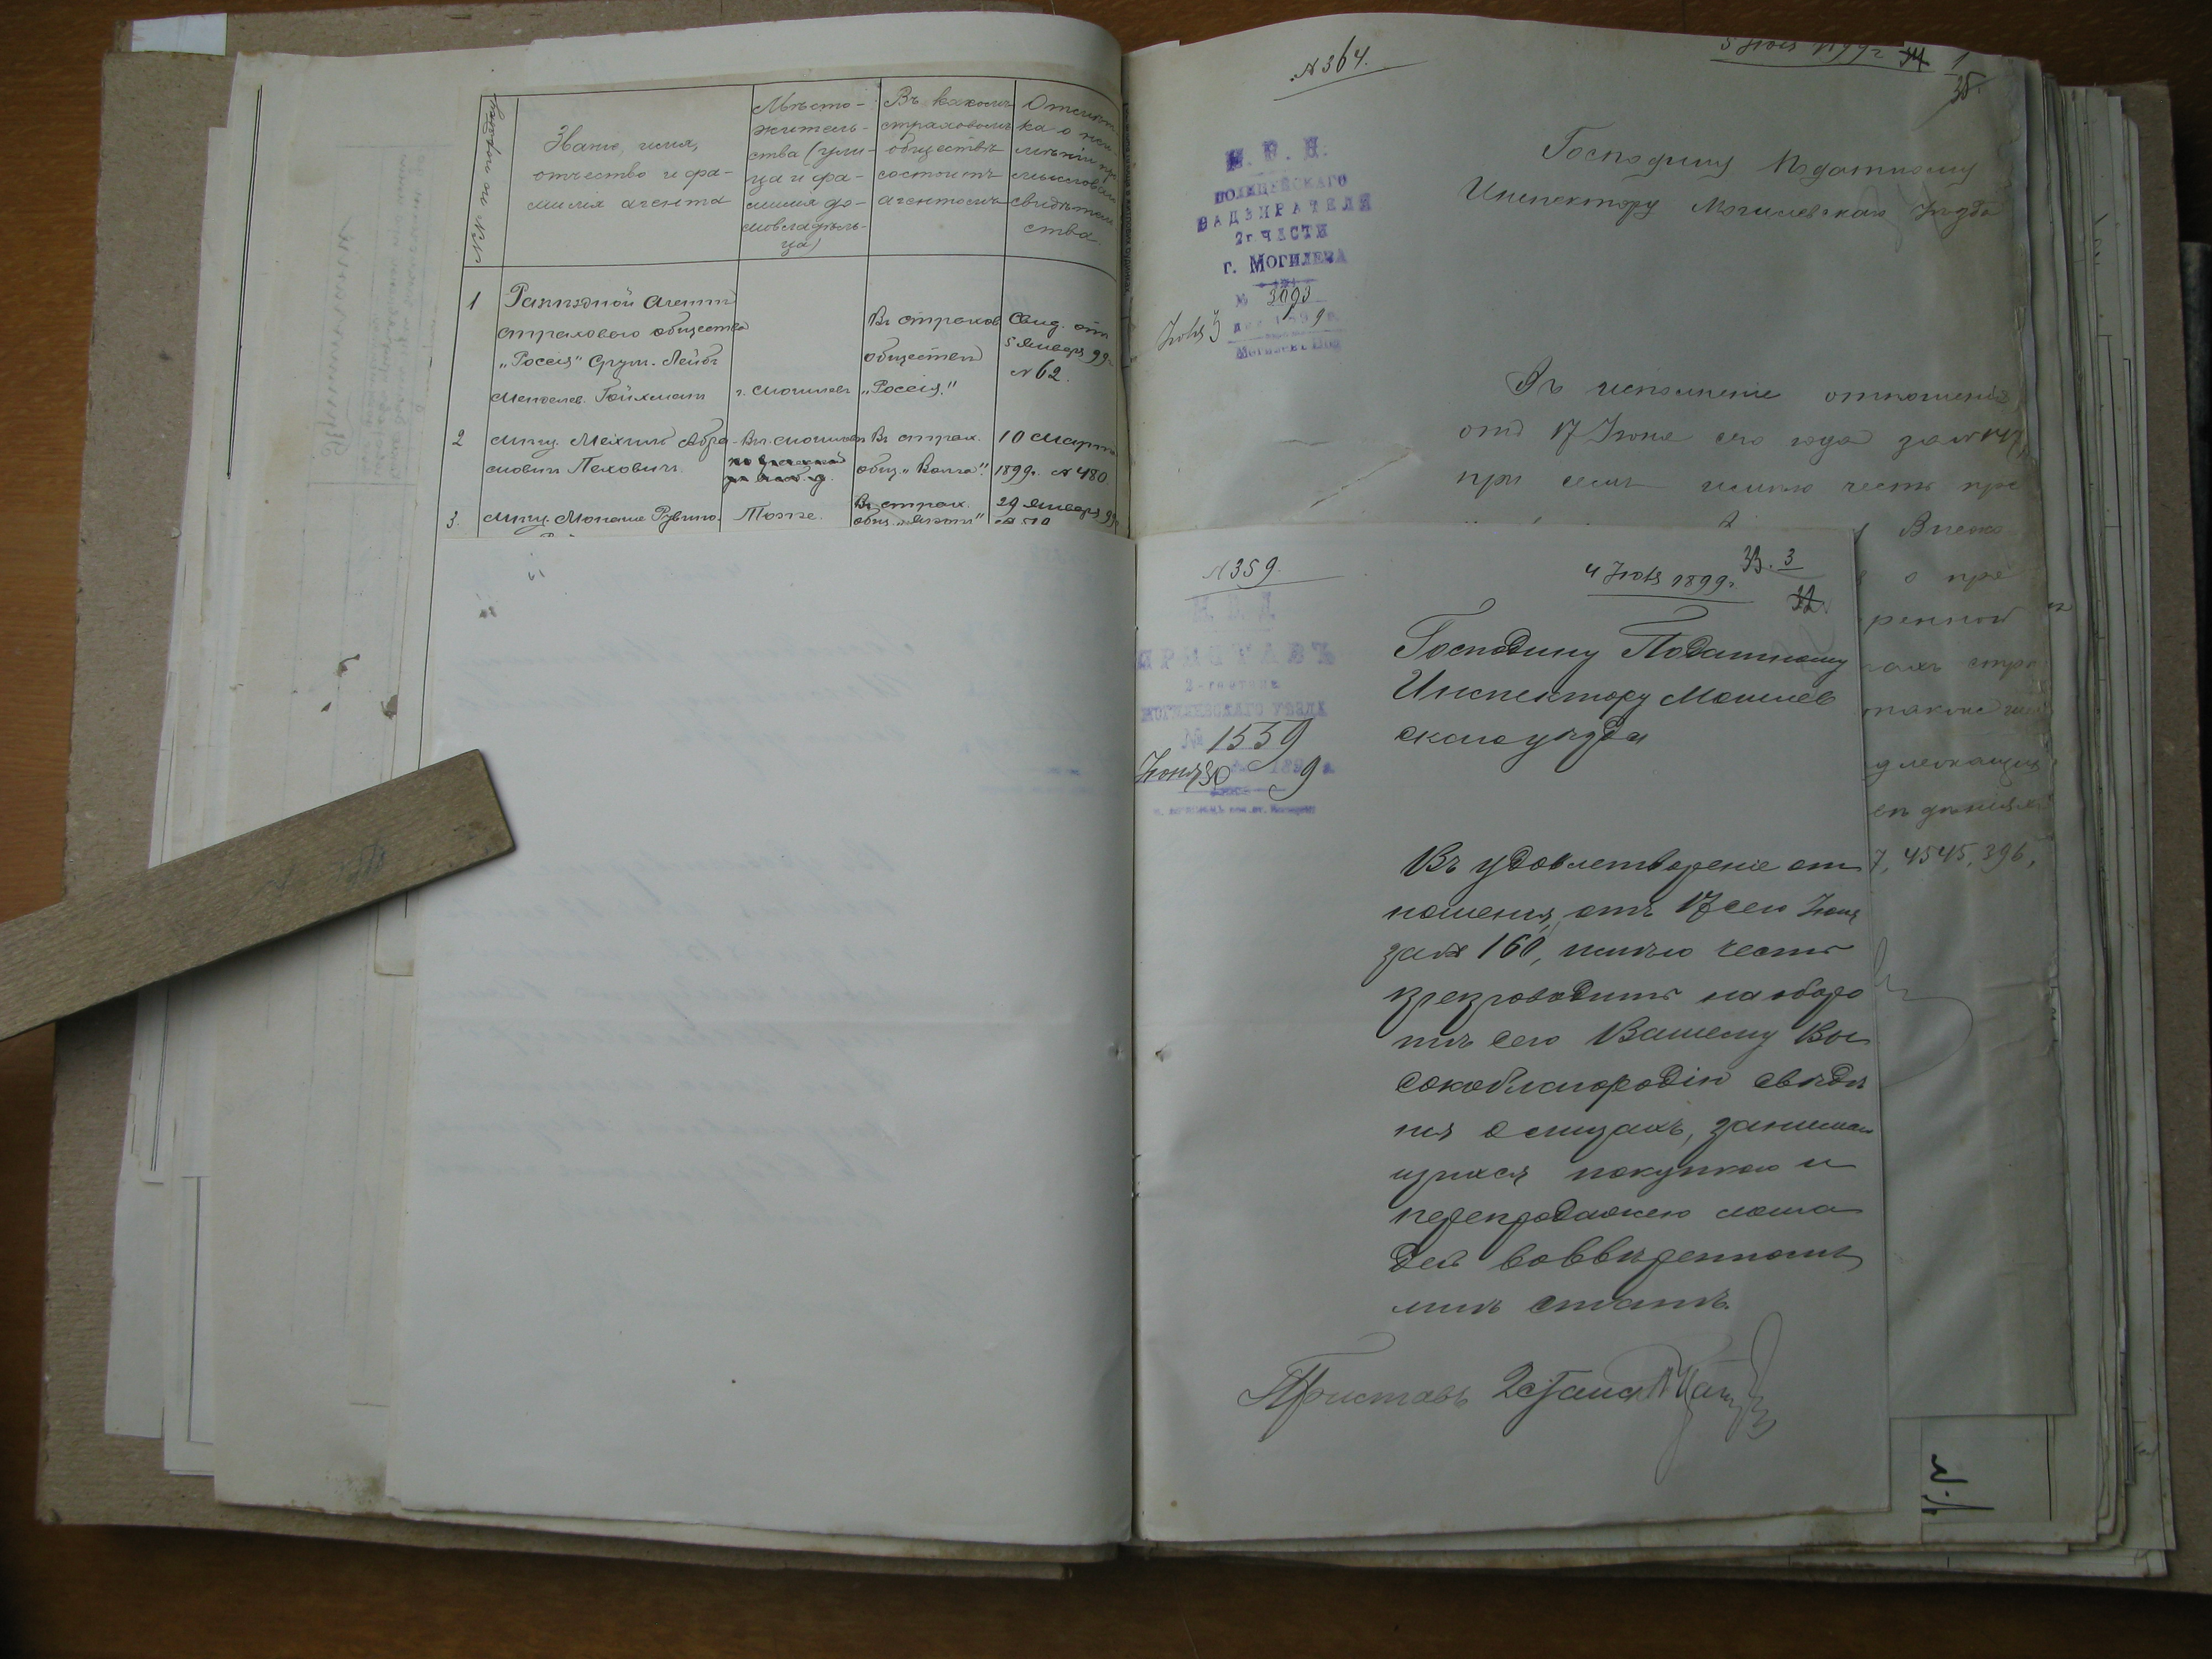 Званіе, имя,
отчество и фа-
милія агента
Мѣсто-
житель-
ства (ули-
ца и фа-
милія до-
мовладѣль-
ца)
Въ какомъ
страховомъ
обществѣ
состоитъ
агентомъ
Отмѣт
ка о
свидѣтель
ства.
1
Разъѣздной агентъ
страхового общества
„Россія" Срул-Лейба
Менделев. Гойхманъ
г. Могилевъ
Въ страхов
обществѣ
„Россія"
Свид. отъ
5 Января 99г
№ 62.
2
Мѣщ. Абра-
мовичъ Пехович.
Въ г. Могилевѣ
Въ страх.
общ. „Волга".
10 Марта
1899г. № 480
3.
Мѣщ. Монаше Рувино.
Тоже.
Въ страх.
общ.
29 Января 99
№ 510
№ 364.
5 Іюля 1899 г 34 1
35.
М. В. Д.
ПОЛИЦЕЙСКАГО
НАДЗИРАТЕЛЯ
2й ЧАСТИ
г. МОГИЛЕВА
№ 3093
Іюля 3 дня 1899 г.
Господину Податному
Инспектору Могилевскаго Уѣзда
Въ исполненіе отношенія
отъ 17 Іюня сего года за №
при семъ имѣю честь пре
Высоко
о пре
ренной
рахъ стра
также
длежащих
7, 4545, 396,
№ 359.
4 Іюля 1899 г. 33. 3
32.
М. В. Д.
ПРИСТАВЪ
2-го стана
МОГИЛЕВСКАГО УѢЗДА
№ 1559
Іюня 30 дня 1899 г.
Господину Податному
Инспектору Могилев
скаго уѣзда
Въ удовлетвореніе от
ношенія, отъ 17 сего Іюня
за № 160, имѣю честь
препроводить на оборо
тѣ сего Вашему Вы
сокоблагородію свѣдѣ
нія о лицахъ, занимаю
щихся покупкою и
перепродажею лоша
дей во ввѣренномъ
мнѣ станѣ.
Приставъ 2 стана